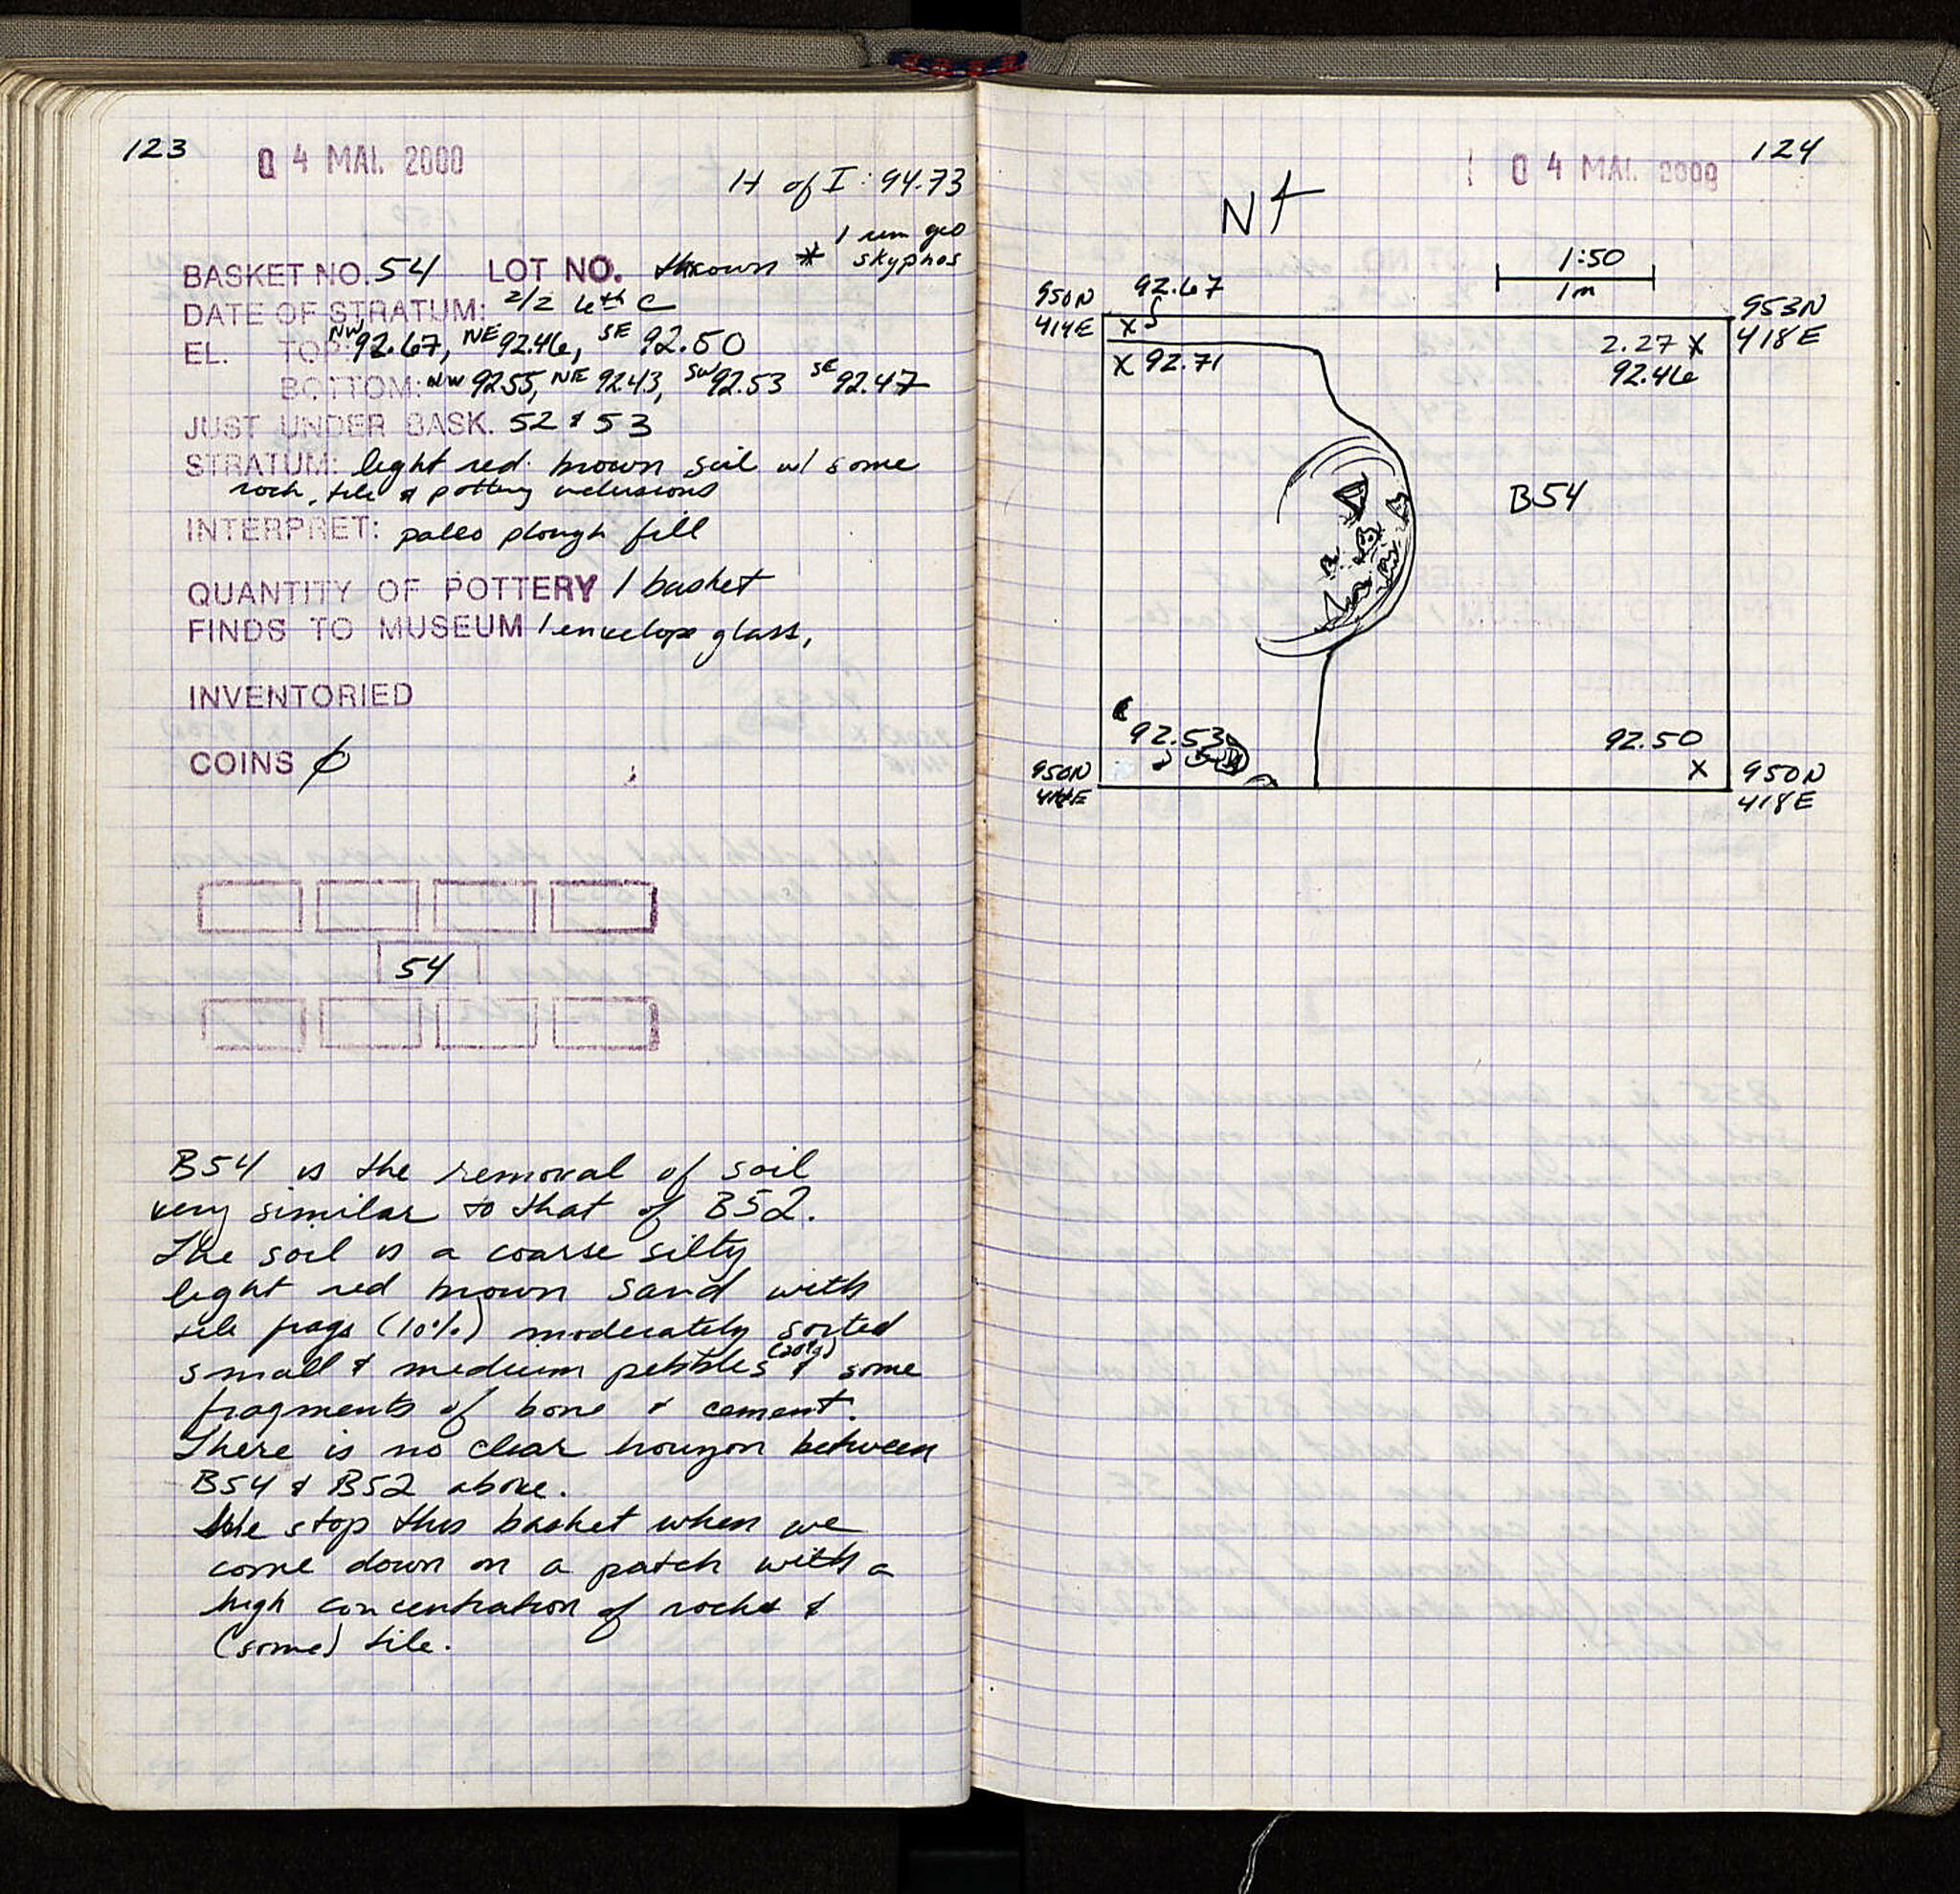 123
04 MAI. 2000
H of I: 94.73
1 rim geo
BASKET NO. 54 LOT NO. thrown * skyphos
DATE OF STRATUM: 2/2 6th C
EL. TOP: NW 92.67, NE 92.46, SE 92.50
BOTTOM: NW 92.55, NE 92.43, SW 92.53 SE 92.47
JUST UNDER BASK. 52 & 53
STRATUM: light red brown soil w/ some
rock, tile & pottery inclusions
INTERPRET: paleo plough fill
QUANTITY OF POTTERY 1 basket
FINDS TO MUSEUM 1 envelope glass,
INVENTORIED
COINS ∅
54
B54 is the removal of soil
very similar to that of B52.
The soil is a coarse silty
light red brown sand with
tile frags (10%) moderately sorted
small & medium pebbles (20%) & some
fragments of bone & cement.
There is no clear horizon between
B54 & B52 above.
We stop this basket when we
come down on a patch with a
high concentration of rocks &
(some) tile.
124
04 MAI. 2000
N
1:50
1m
950N
414E
92.67
X
X 92.71
953N
418E
2.27 X
92.46
B54
92.53
950N
414E
92.50
X
950N
418E